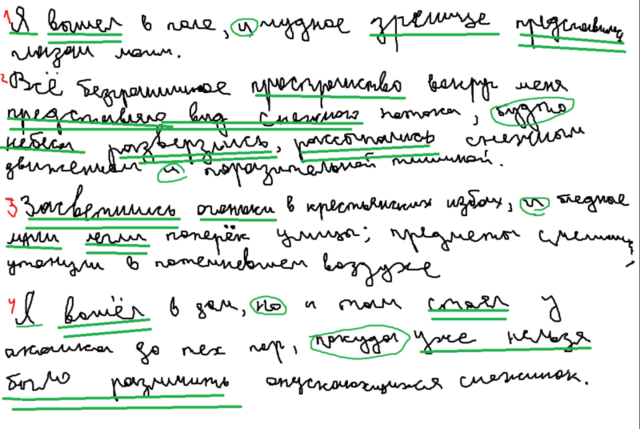 1 Я вышел в поле, и чудное зрелище представилось
глазам моим.
2 Всё безграничное пространство вокруг меня
представляло вид снежного потока, будто
небеса разверзлись, рассыпались снежным
движением и поразительной тишиной.
3 Засветились огоньки в крестьянских избах, и бледные
лучи легли поперёк улицы; предметы
утонули в потемневшем воздухе
4 Я вошёл в дом, но и там стоял у
окошка до тех пор, покуда уже нельзя
было различить опускающихся снежинок.